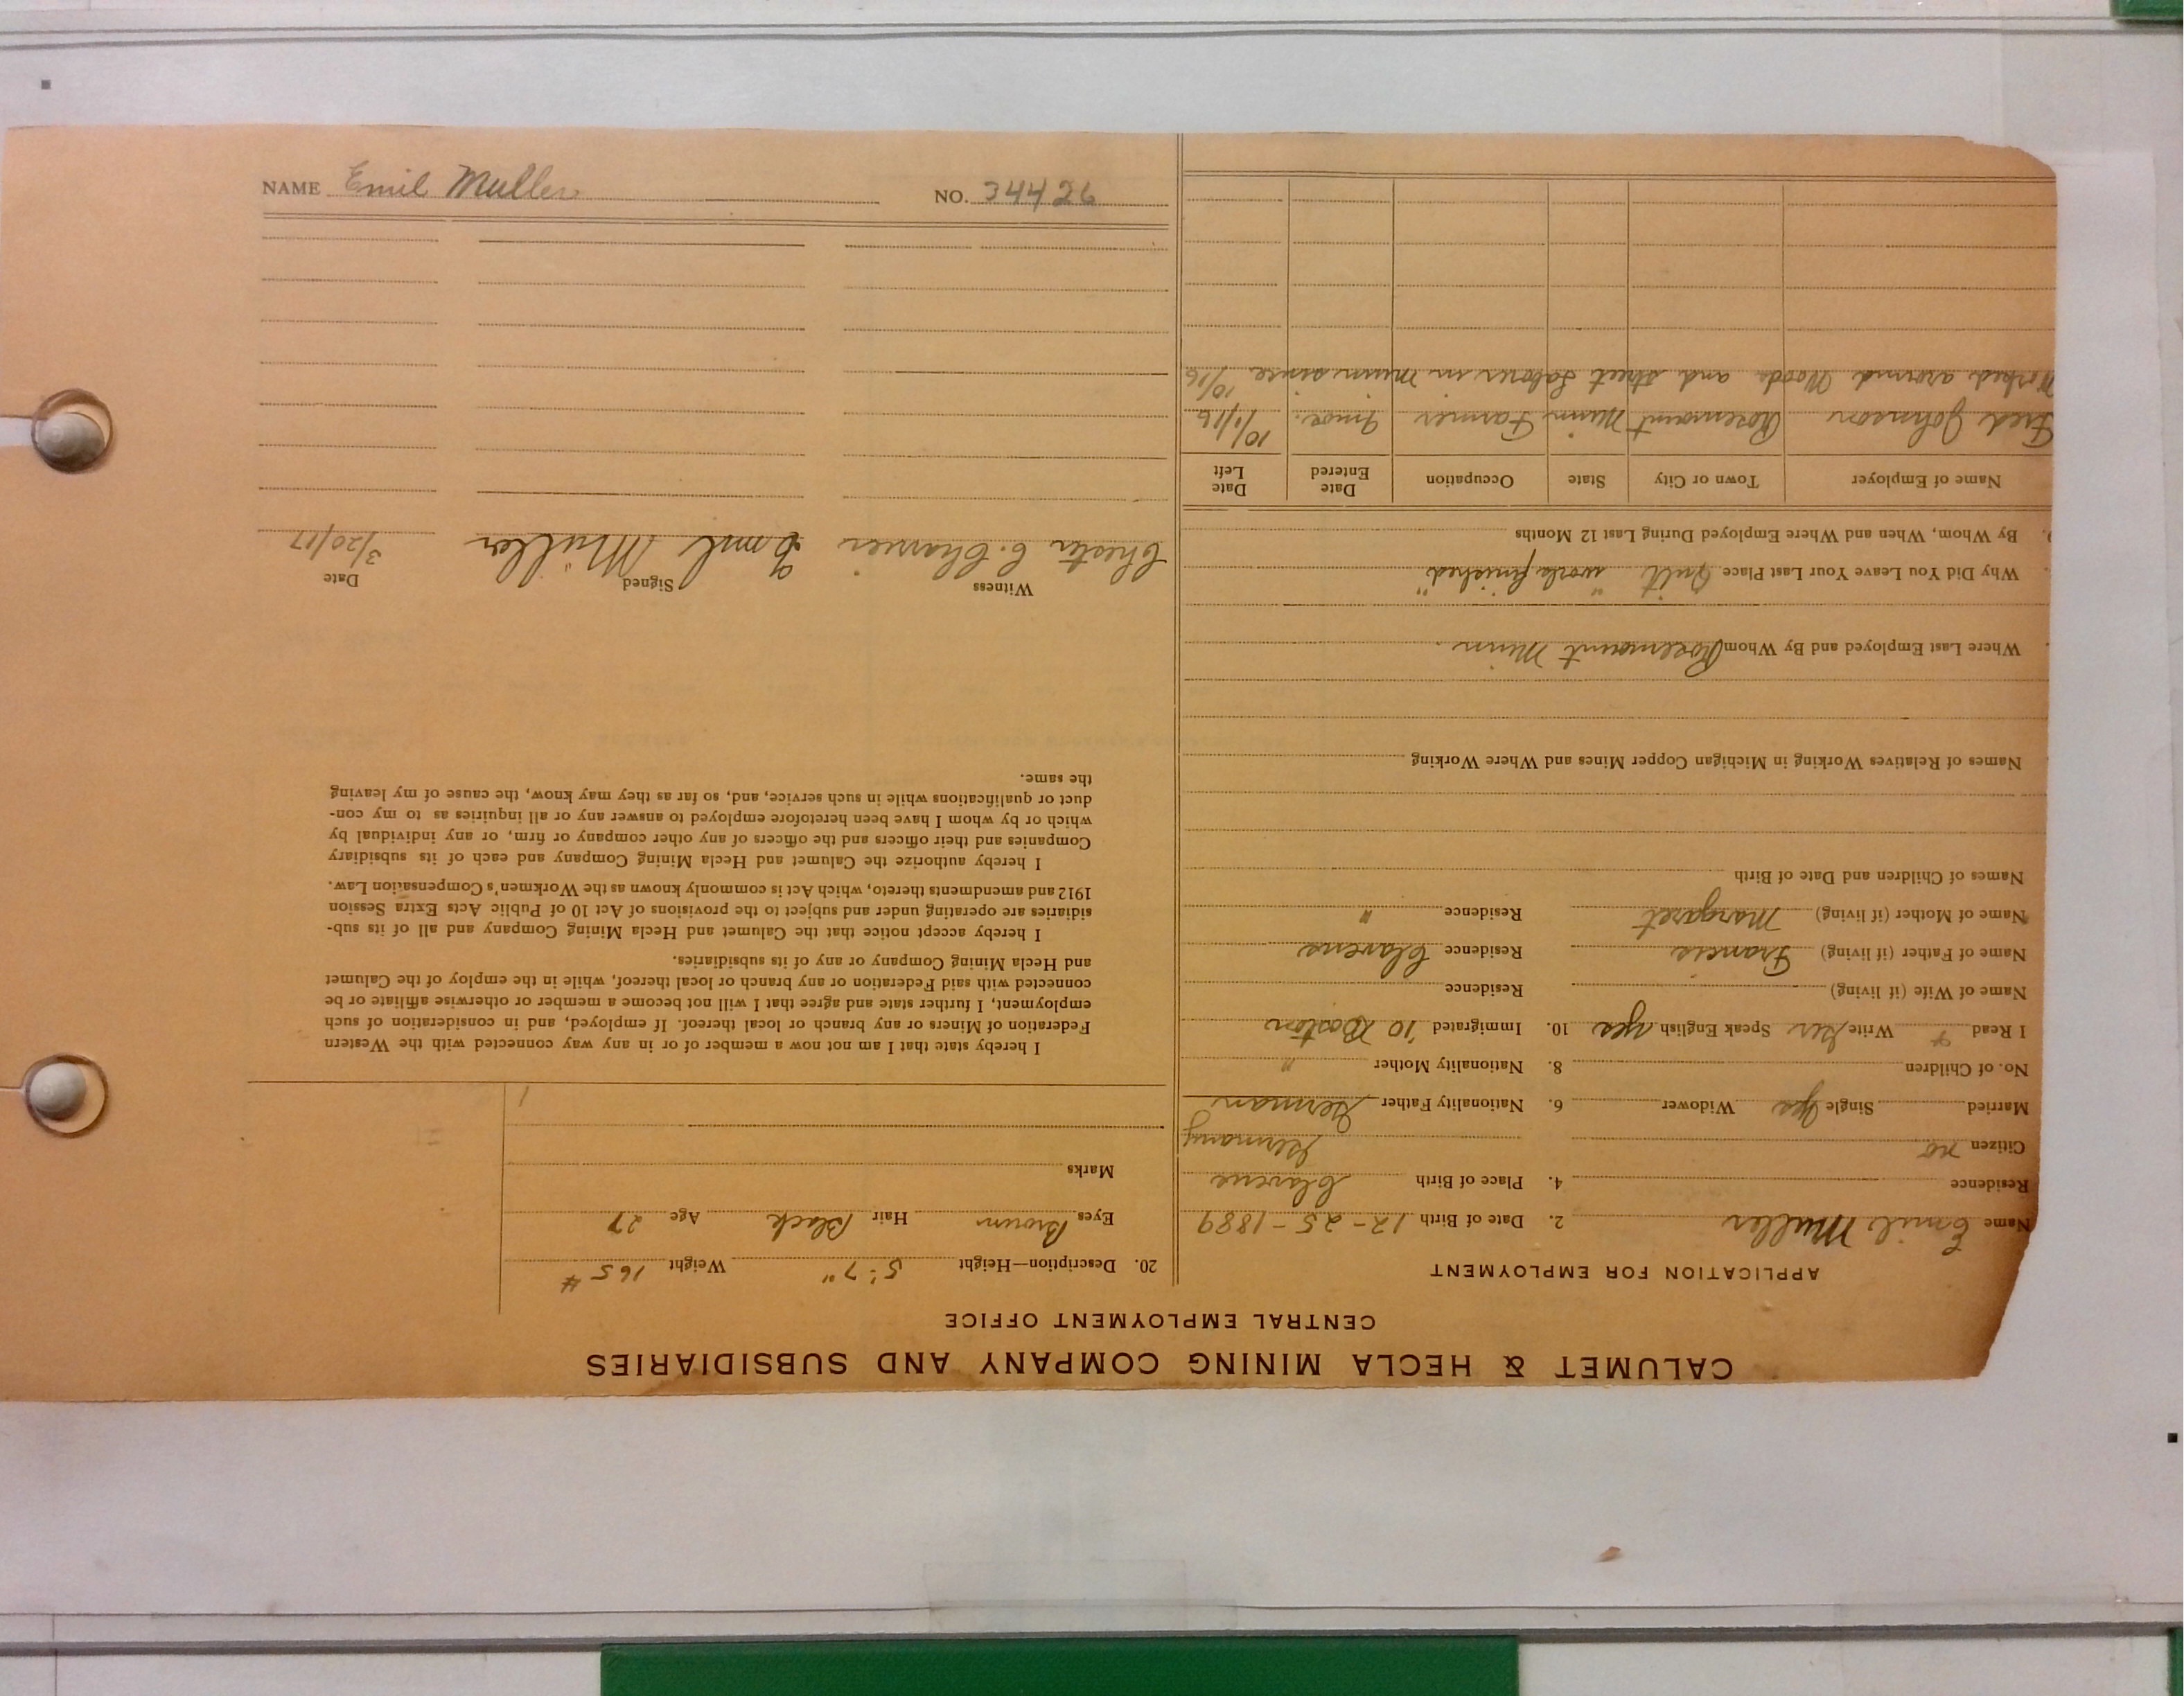 CALUMET & HECLA MINING COMPANY AND SUBSIDIARIES
CENTRAL EMPLOYMENT OFFICE
APPLICATION FOR EMPLOYMENT
Name Emil Muller 2. Date of Birth 12-25-1889
Residence 4. Place of Birth
Citizen no Germany
Married Single yes Widower 6. Nationality Father German
No. of Children 8. Nationality Mother "
I Read Write Speak English yes 10. Immigrated '10 Boston
Name of Wife (if living) Residence
Name of Father (if living) Francis Residence
Name of Mother (if living) Margaret Residence "
Names of Children and Date of Birth
Names of Relatives Working in Michigan Copper Mines and Where Working
Where Last Employed and By Whom Rosemount Minn
Why Did You Leave Your Last Place Quit "work finished"
By Whom, When and Where Employed During Last 12 Months
Name of Employer Town or City State Occupation Date Entered Date Left
Fred Johnson Rosemount Minn Farmer 10/1/16
Worked around Woods and street Labour in Minn since 10/16
20. Description—Height 5'-7" Weight 165 #
Eyes Brown Hair Black Age 27
Marks
I hereby state that I am not now a member of or in any way connected with the Western
Federation of Miners or any branch or local thereof. If employed, and in consideration of such
employment, I further state and agree that I will not become a member or otherwise affiliate or be
connected with said Federation or any branch or local thereof, while in the employ of the Calumet
and Hecla Mining Company or any of its subsidiaries.
I hereby accept notice that the Calumet and Hecla Mining Company and all of its sub-
sidiaries are operating under and subject to the provisions of Act 10 of Public Acts Extra Session
1912 and amendments thereto, which Act is commonly known as the Workmen's Compensation Law.
I hereby authorize the Calumet and Hecla Mining Company and each of its subsidiary
Companies and their officers and the officers of any other company or firm, or any individual by
which or by whom I have been heretofore employed to answer any or all inquiries as to my con-
duct or qualifications while in such service, and, so far as they may know, the cause of my leaving
the same.
Witness Signed Date
Chester C. Emil Müller 3/20/17
NAME Emil Muller NO. 34426